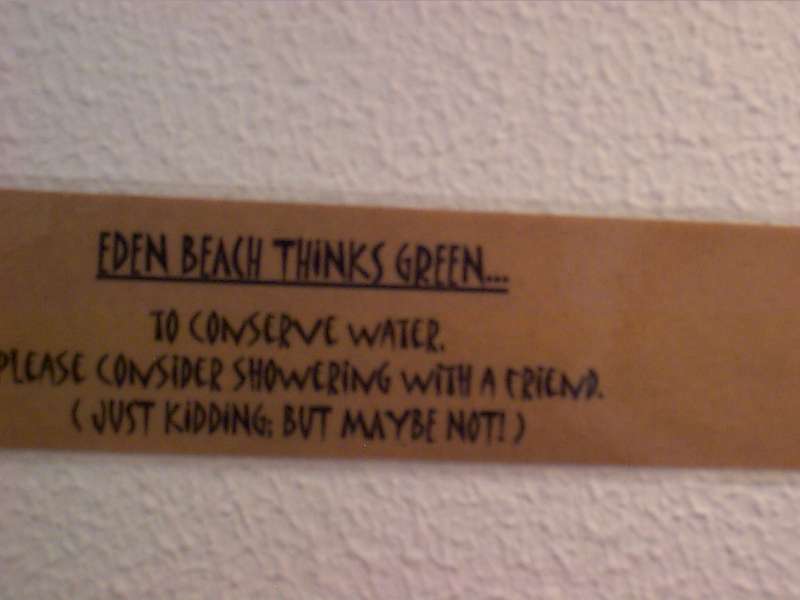 EDEN BEACH THINKS GREEN...
TO CONSERVE WATER,
PLEASE CONSIDER SHOWERING WITH A FRIEND.
( JUST KIDDING; BUT MAYBE NOT! )